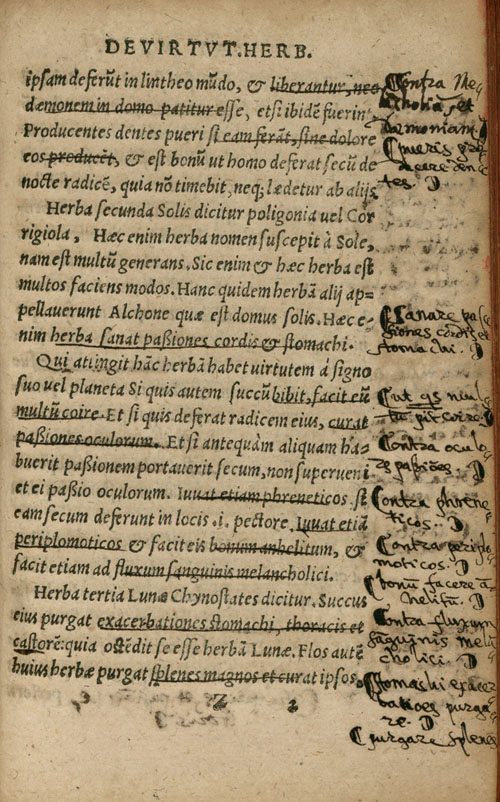 DE VIRTVT. HERB.
ipsam deferũt in lintheo mũdo, & liberantur, nec
dæmonem in domo patitur esse, etsi ibidẽ fuerin
Producentes dentes pueri si eam ferãt, sine dolore
eos producẽt, & est bonũ ut homo deferat secũ de
nocte radicẽ, quia nõ timebit, neq; lædetur ab alijs
Herba secunda Solis dicitur poligonia uel Cor
rigiola, Hæc enim herba nomen suscepit à Sole,
nam est multũ generans, Sic enim & hæc herba est
multos faciens modos. Hanc quidem herbã alij ap=
pellauerunt Alchone quæ est domus solis. Hæc e-
nim herba sanat paßiones cordis & stomachi.
Qui attingit hãc herbã habet uirtutem á signo
suo uel planeta Si quis autem succũ bibit, facit eũ
multũ coire. Et si quis deferat radicem eius, curat
paßiones oculorum. Et si antequàm aliquam ha-
buerit paßionem portauerit secum, non superueni
et ei paßio oculorum. Iuuat etiam phreneticos. si
eam secum deferunt in locis .i. pectore. Iuuat etiã
periplomoticos & facit eis bonum anhelitum, &
facit etiam ad fluxum sanguinis melancholici.
Herba tertia Lunæ Chynostates dicitur. Succus
eius purgat exacerbationes stomachi, thoracis et
castorẽ: quia ostẽdit se esse herbã Lunæ. Flos autẽ
huius herbæ purgat splenes magnos et curat ipsos
Z 2
Contra Me
cholia, et
Dæmoniam
pueris
dentes.
Sanare pas
siones cordis et
stomachi.
Ut qs mul
tũ coire.
Contra oculo
passiões
Contra phrene
ticos.
Contra perip
moticos.
bonũ facere ã
helitũ.
Contra fluxum
sãguinis mel
cholici.
Stomachi exacer
batiões purga
re.
purgare splenes